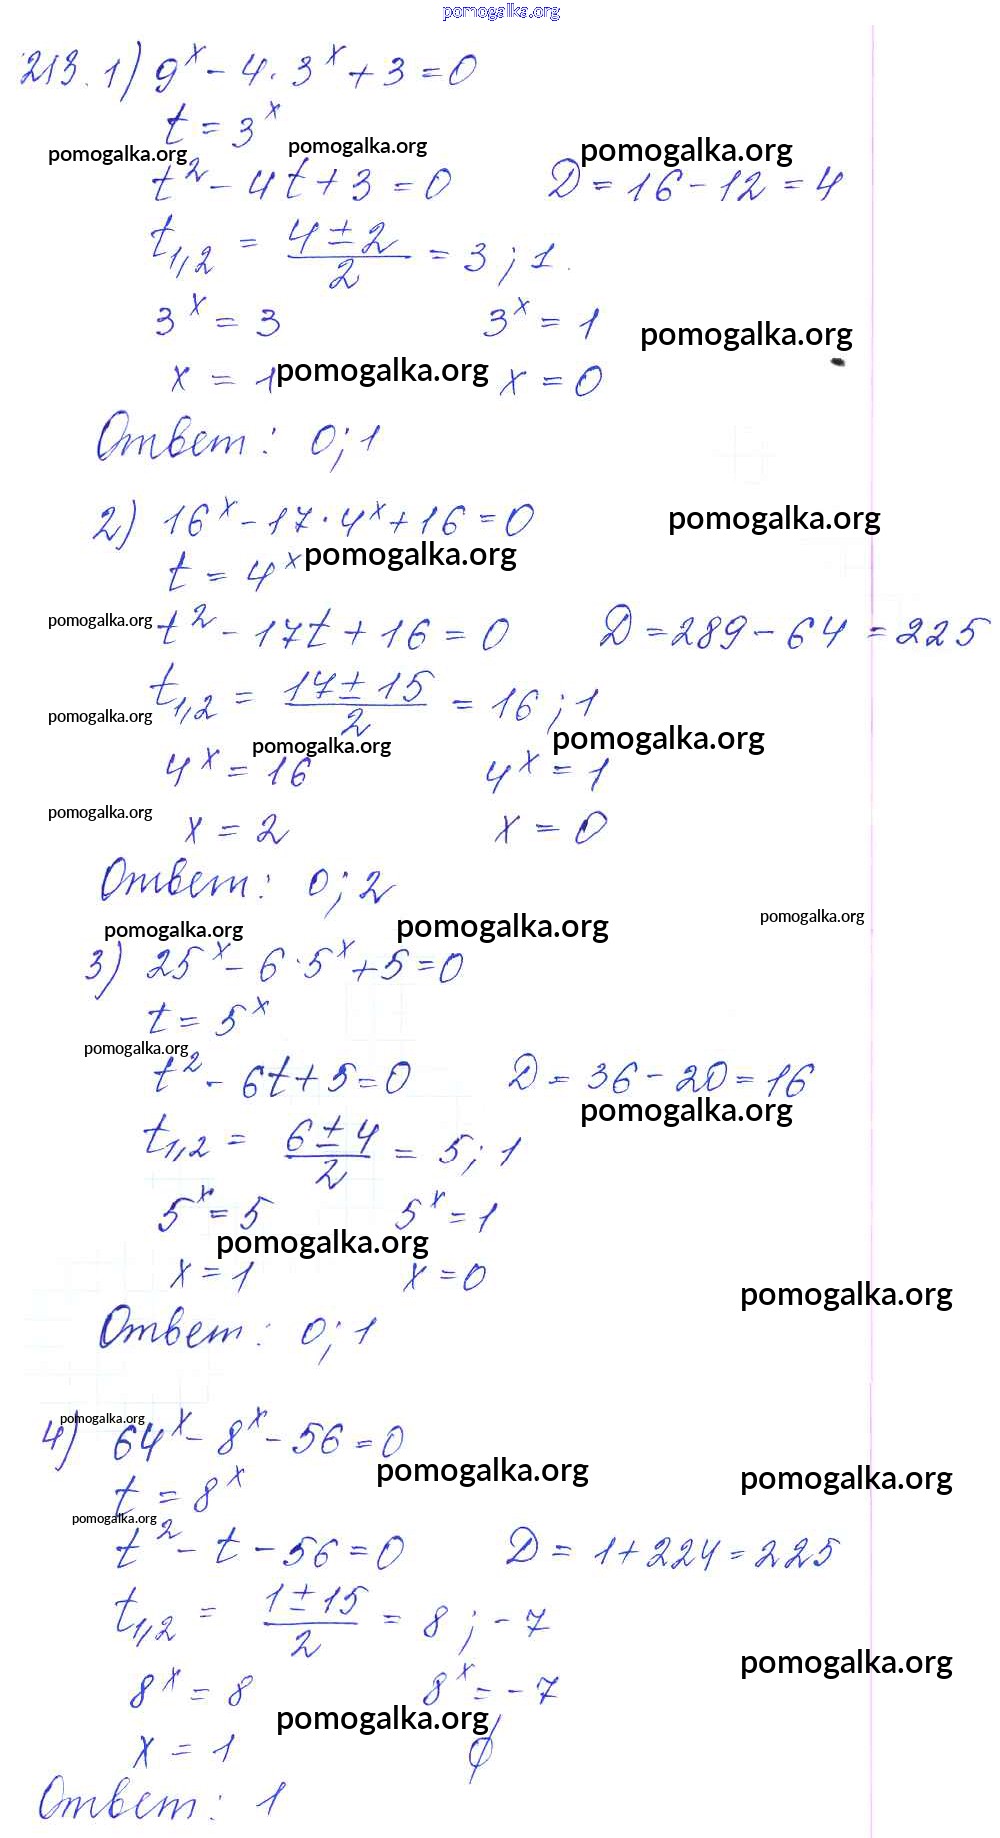 pomogalka.org
213. 1) 9^x - 4 · 3^x + 3 = 0
t = 3^x
pomogalka.org pomogalka.org pomogalka.org
t² - 4t + 3 = 0 D = 16 - 12 = 4
t₁,₂ = (4 ± 2)/2 = 3 ; 1
3^x = 3 3^x = 1 pomogalka.org
x = 1 pomogalka.org x = 0
Ответ: 0; 1
2) 16^x - 17 · 4^x + 16 = 0 pomogalka.org
t = 4^x pomogalka.org
pomogalka.org t² - 17t + 16 = 0 D = 289 - 64 = 225
t₁,₂ = (17 ± 15)/2 = 16 ; 1
pomogalka.org pomogalka.org pomogalka.org
4^x = 16 4^x = 1
pomogalka.org x = 2 x = 0
Ответ: 0; 2
pomogalka.org pomogalka.org pomogalka.org
3) 25^x - 6 · 5^x + 5 = 0
t = 5^x
pomogalka.org
t² - 6t + 5 = 0 D = 36 - 20 = 16
pomogalka.org
t₁,₂ = (6 ± 4)/2 = 5; 1
5^x = 5 5^x = 1
pomogalka.org
x = 1 x = 0
pomogalka.org
Ответ: 0; 1
pomogalka.org
4) 64^x - 8^x - 56 = 0
pomogalka.org pomogalka.org
t = 8^x
pomogalka.org
t² - t - 56 = 0 D = 1 + 224 = 225
t₁,₂ = (1 ± 15)/2 = 8 ; -7
pomogalka.org
8^x = 8 8^x = -7
pomogalka.org
x = 1 ∅
Ответ: 1